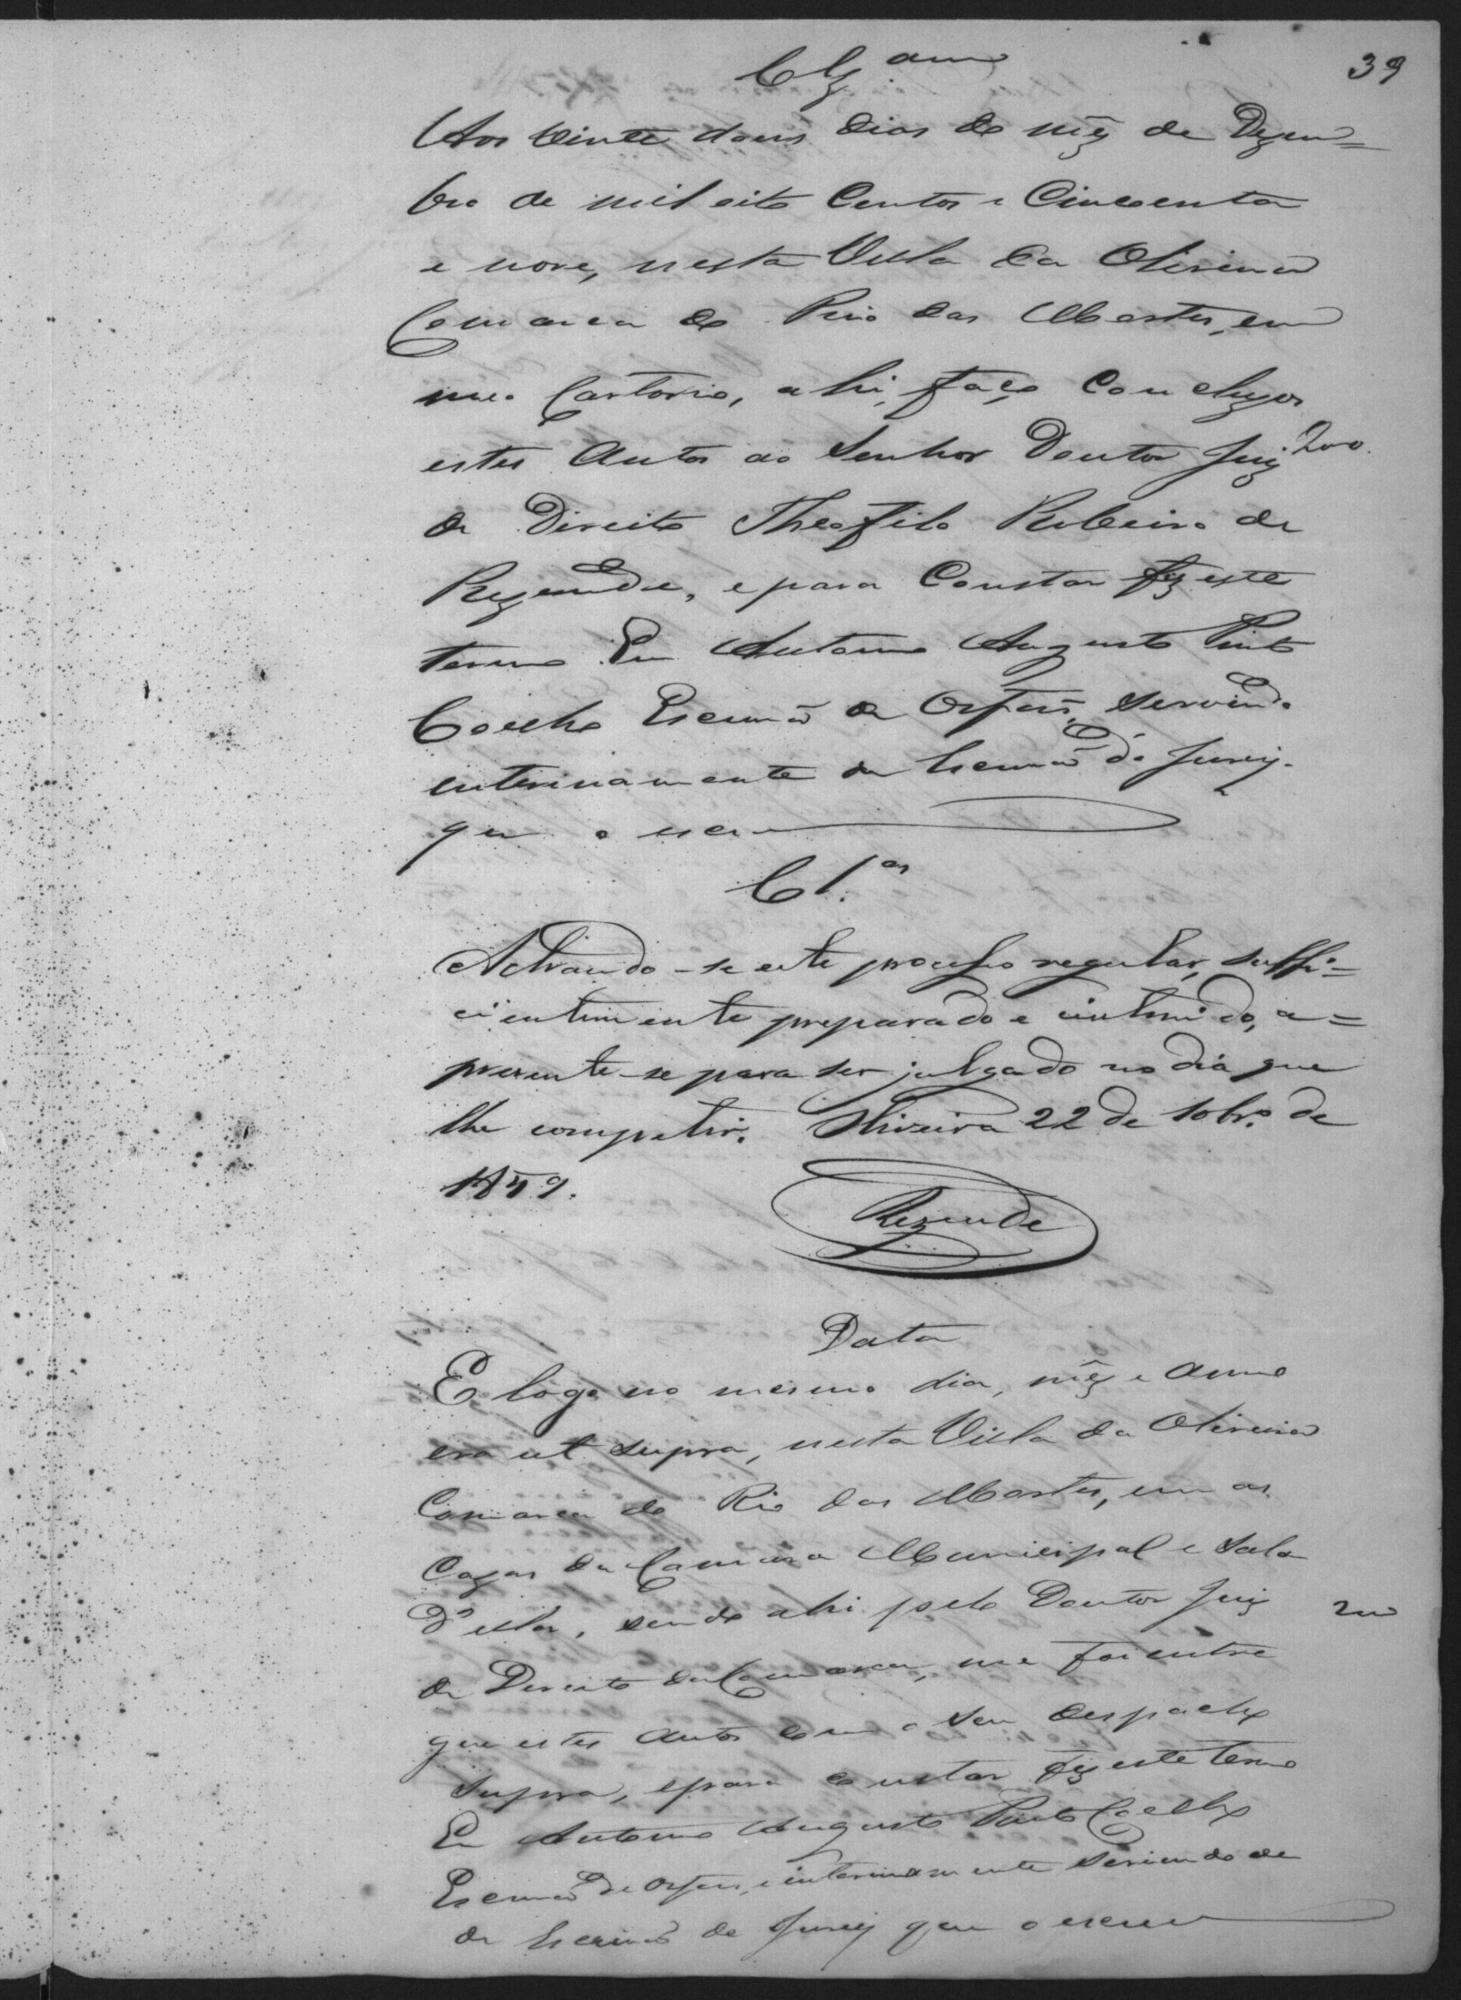 39
Clz.am
Aos vinte dous dias do mêz de Dezem=
bro de mil oito centos e Cincoenta
e nove, nesta Villa da Oliveira
Comarca do Rio das Mortes, em
meo Cartorio, ahi, faço Concluzos
estes Autos ao Senhor Doutor Juiz 200
de Direito Theofilo Ribeiro de
Rezende, e para Constar fiz este
termo Eu Antonio Augusto Pinto
Coelho Escrivão de Orfãos, servindo
enterinamente de Escrivão do Jury.
que o escrevi
Cl.os
Achando-se este processo regular, suffi=
cientemente preparado e instruido, a=
presente-se para ser julgado no dia que
lhe competir. Oliveira 22 de 10br.o de
1859.
Rezende
Data
E logo no mesmo dia, mêz e anno
era ut supra, nesta Villa da Oliveira
Comarca do Rio das Mortes, em as
Cazas da Camara Municipal e Sala
D'estar, sendo ahi pelo Doutor Juiz 200
de Direito da Comarca, me foi entre
gue estes autos com o seu despacho
supra, e para constar fiz este termo
Eu Antonio Augusto Pinto Coelho
Escrivão de Orfãos, e interinamente servindo de
de Escrivão do Jury que o escrevi